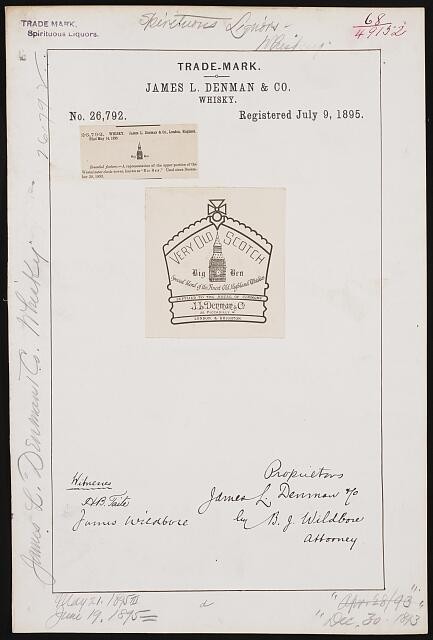 TRADE MARK.
Spirituous Liquors.
Spirituous Liquors -
Whisky.
68
49132
TRADE-MARK.
JAMES L. DENMAN & CO.
WHISKY.
No. 26,792.
Registered July 9, 1895.
26,792. WHISKY. James L. Denman & Co., London, England.
Filed May 14, 1895.
Big Ben
Essential feature.—A representation of the upper portion of the
Westminster clock-tower, known as "Big Ben." Used since Decem-
ber 30, 1893.
VERY OLD SCOTCH
Big Ben
Special Blend of the Finest Old Highland Whiskies
SUPPLIED TO THE HOUSE OF COMMONS
J. L. Denman & Co
PICCADILLY W
LONDON, & BRIGHTON
James L. Denman & Co. Whisky - 26,792
Witnesses
James Wildbore
Proprietors
James L. Denman & Co
by B. J. Wildbore
Attorney
May 21, 1895
June 19, 1895
"Apr. 28/93"
"Dec. 30. 1893